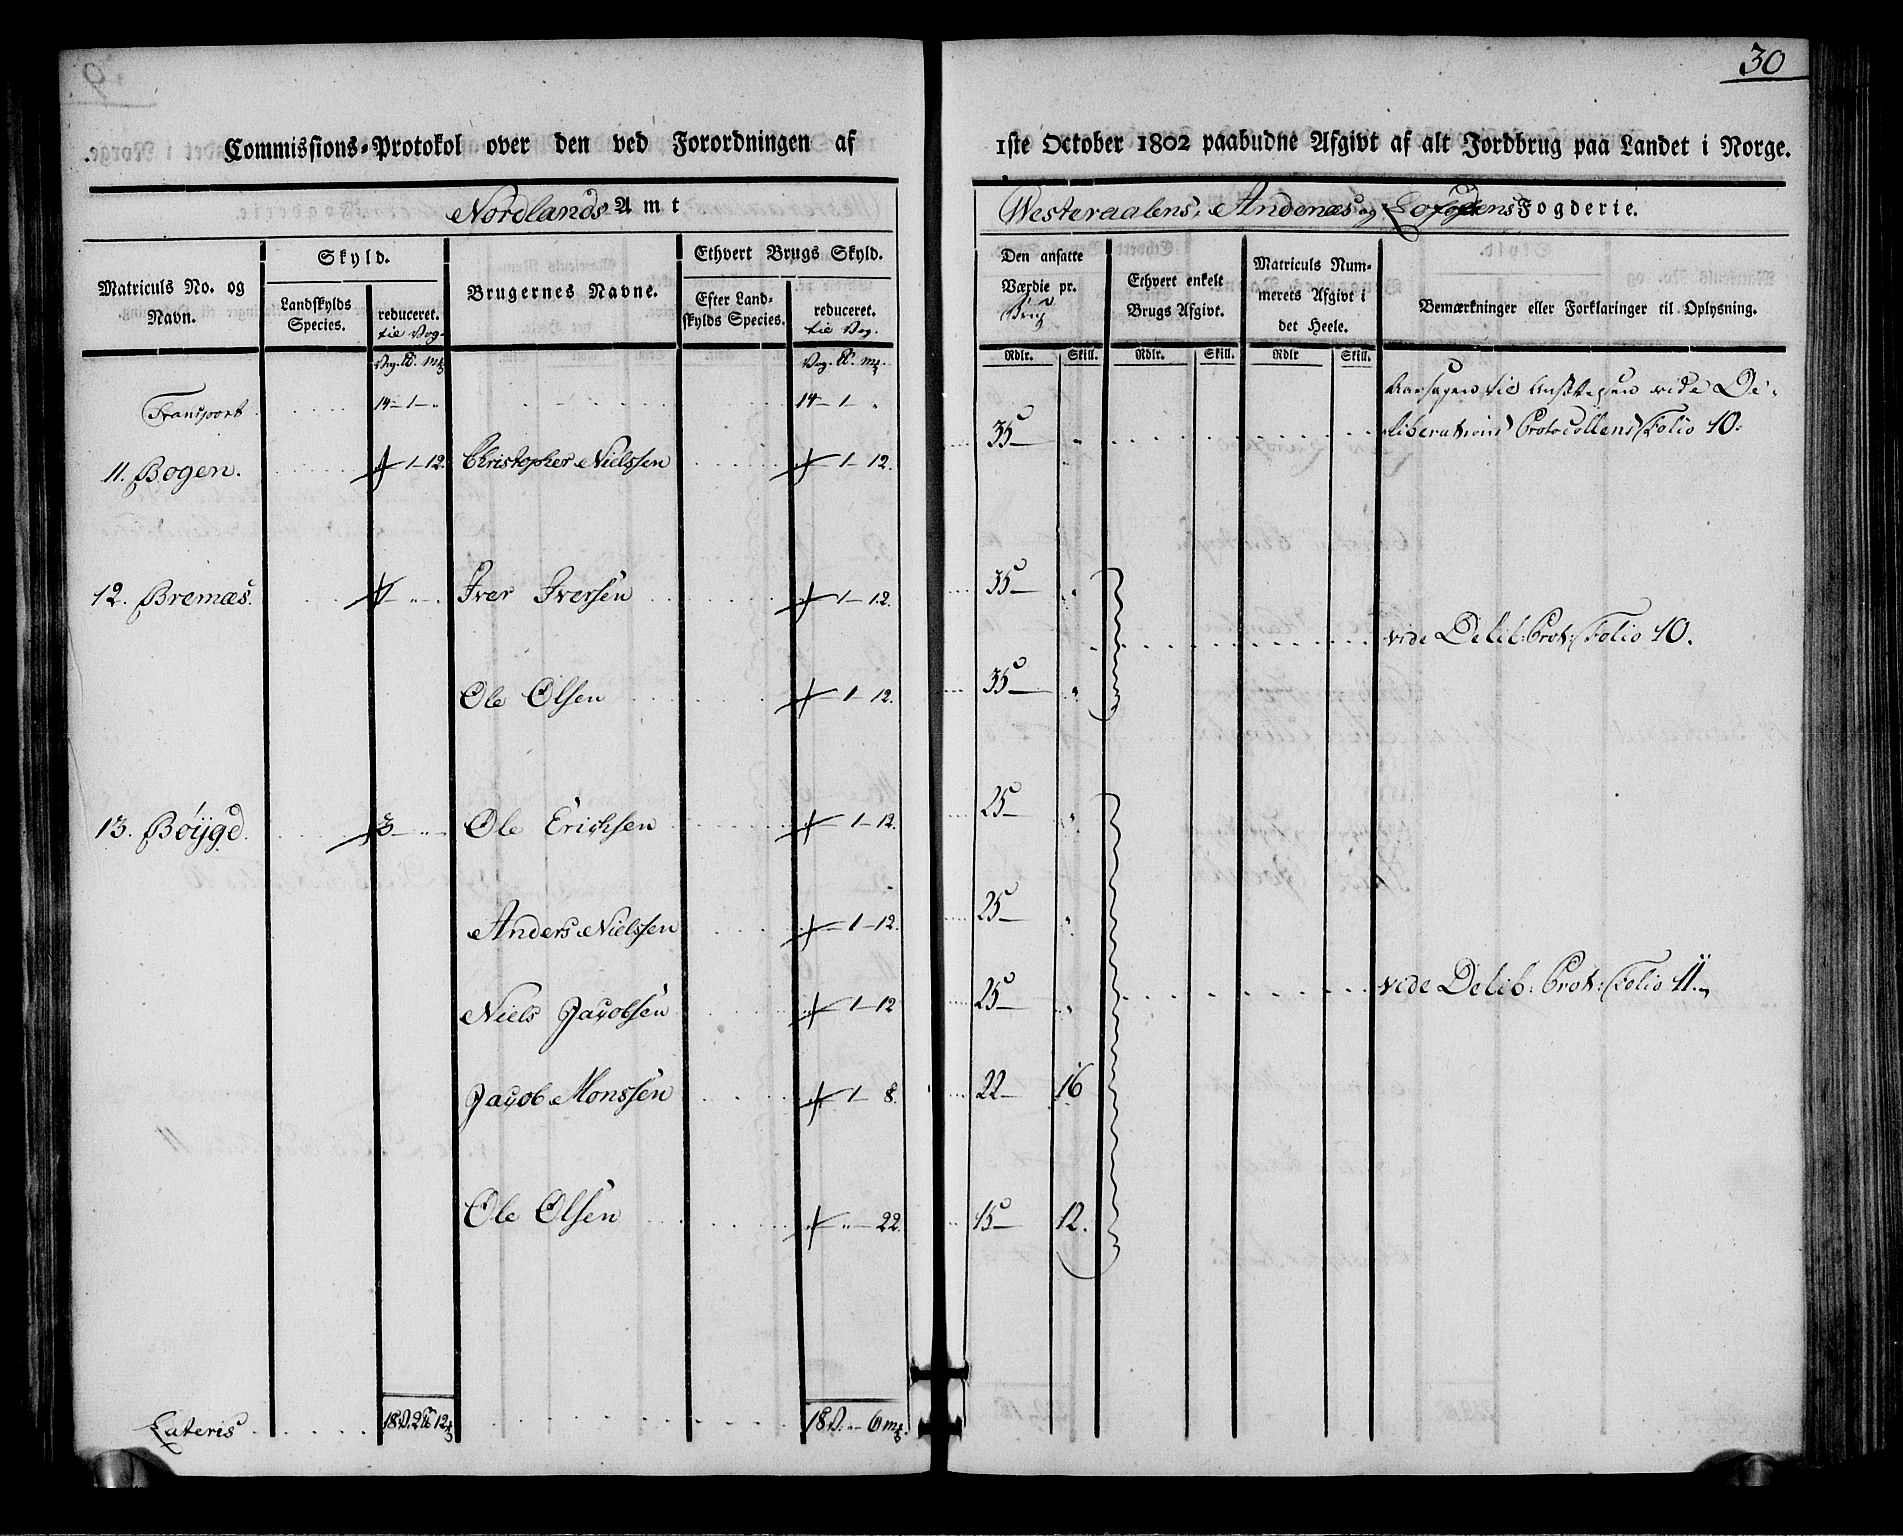 30
Commissions-Protokol over den ved Forordningen af 1ste October 1802 paabudne Afgivt af alt Jordbrug paa Landet i Norge.
Nordlands Amt
Westeraalens, Andenæs og Lofodens Fogderie.
Matriculs No. og Navn.
Skyld.
Landskylds Species.
reduceret. til Vog.
Brugernes Navne.
Ethvert Brugs Skyld.
Efter Landskylds Species.
reduceret. til Vog.
Den ansatte Værdie pr. Brug
Ethvert enkelt Brugs Afgivt.
Matriculs Nummerets Afgivt i det Heele.
Bemærkninger eller Forklaringer til Oplysning.
Rdlr. Skill. Rdlr. Skill. Rdlr Skill.
Transport 14 - 1 - „ 14 - 1 „
Aarsagen til Ansættelsen vide De-
liberations Protocollens Folio 10.
11. Bogen. 1-12. Christopher Nielssen 1-12. 35 „
12. Bremæs. 1 „ „ Iver Iversen 1-12. 35 „
vide Delib: Prot: Folio 10.
Ole Olsen 1-12. 35 „
13. Böygd. 3 „ „ Ole Erichsen 1-12. 25 „
Anders Nielssen 1-12. 25 „
Niels Jacobsen 1-12 25 „
vide Delib: Prot: Folio 11.
Jacob Monssen 1-8. 22 16
Ole Olsen „ 22. 15 12.
Lateris 18 V. 2 12 18 V. „ 6